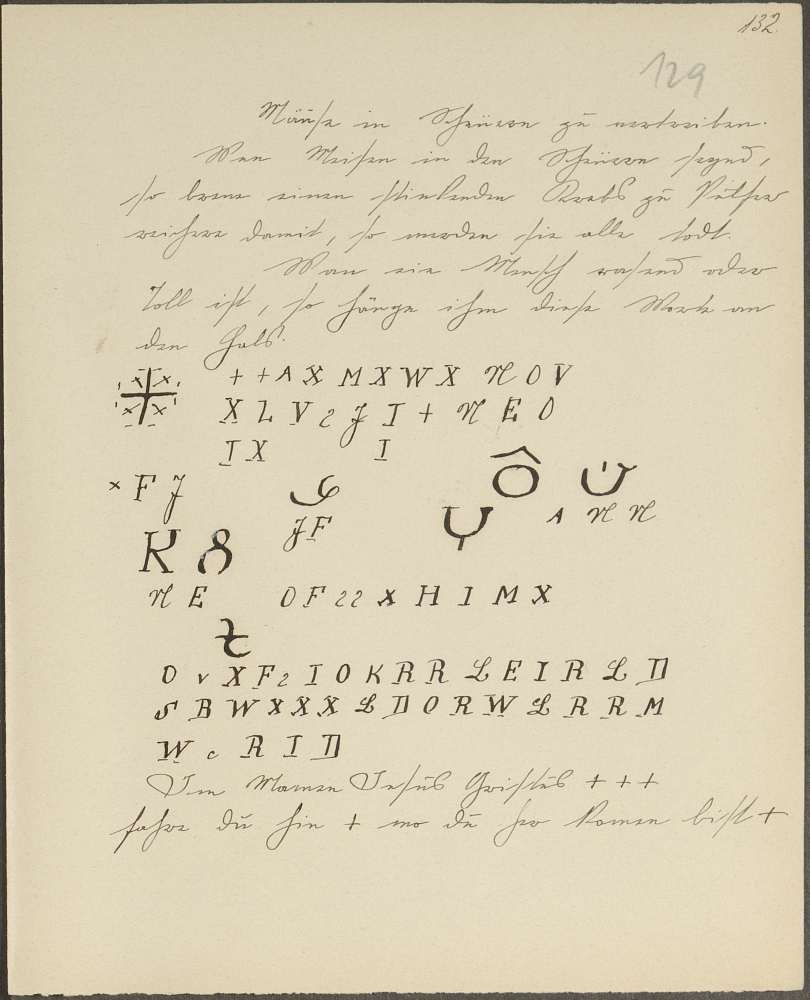 132
129
Mäuse in Scheuern zu vertreiben.
Wen Meisen in den Scheuern seynd,
so brene einen stinkenden Krebs zu Pulfer
reichere damit, so werden sie alle todt.
Wan ein Mensch rasend oder
Toll ist, so hänge ihm diese Worte an
den Hals.
+ + A X M X W X N O V
X L V 2 J I + N E O
I X I
× F J
Ô
J F
A N N
K 8
N E O F 2 2 x H I M X
O v X F 2 I O K R R L E I R L D
S B W X X X L D O R W L R R M
W c R I D
Im Namen Jesus Gristus + + +
fahre du hin + wo du her komen bist +